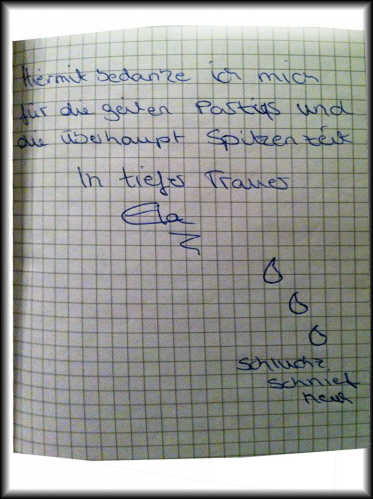 Hiermit bedanke ich mich
für die geilen Partys und
die überhaupt Spitzenzeit
In tiefer Trauer
Ela
schluchz
schnief
heul